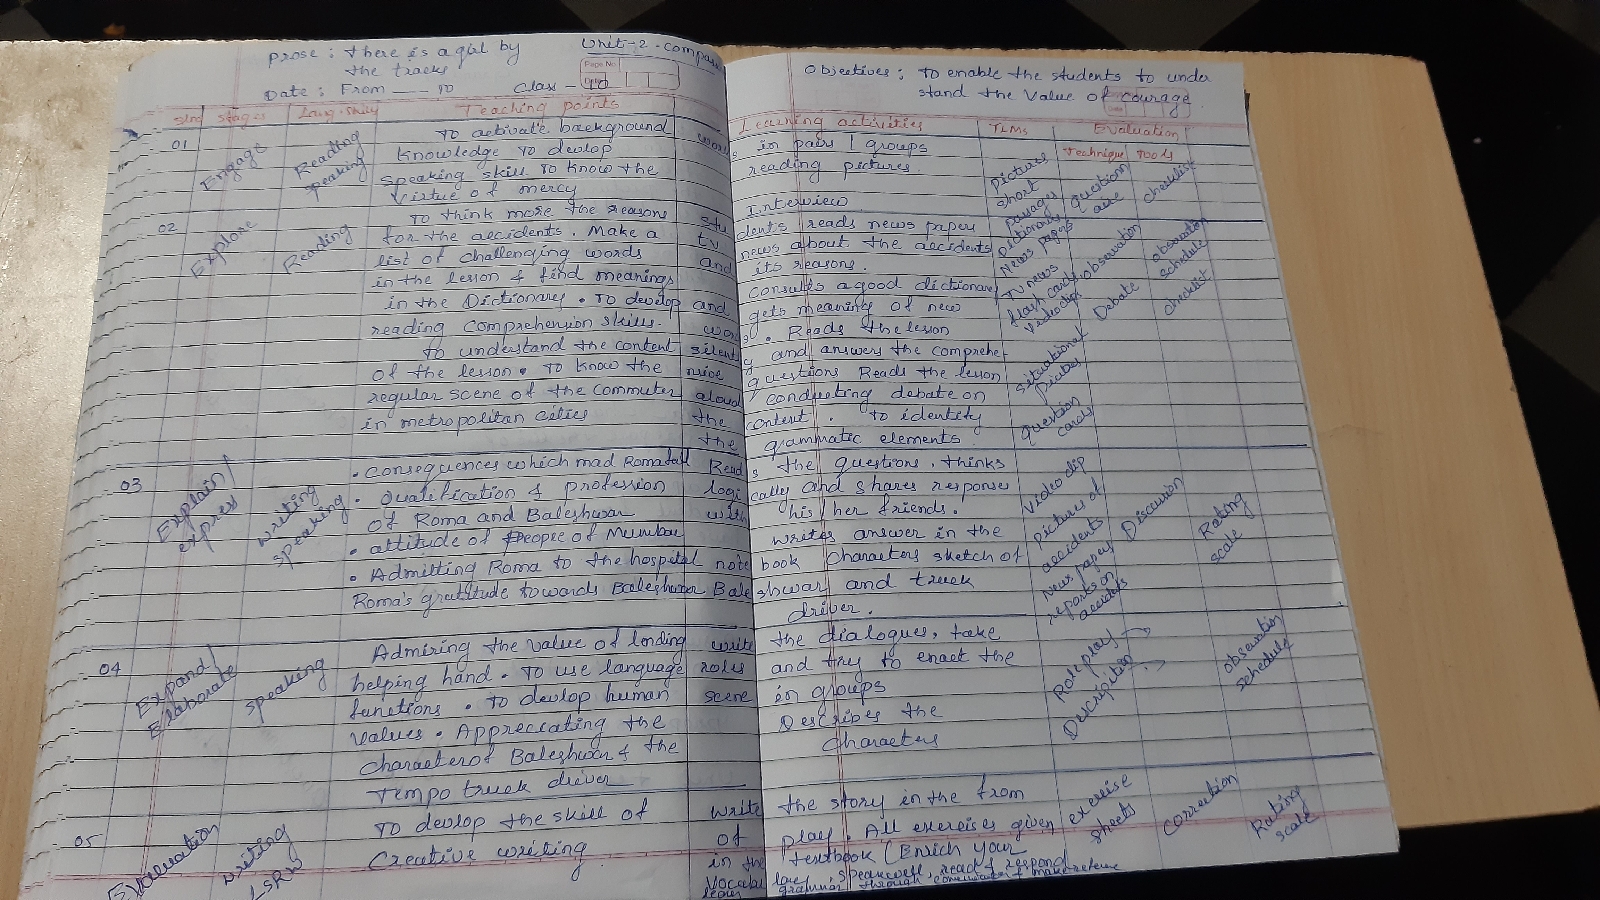 Prose : There is a girl by
the tracks
Unit-2 - compass
Page No
Date : From ___ To
Class - 10
Objectives : To enable the students to under
stand the value of courage.
Slno Stages Lang.skill Teaching points Learning activities TLMs Evaluation
Technique Tools
01 Engage Reading speaking
To activate background
knowledge To devlop
speaking skill To know the
virtue of mercy
works in pairs / groups
reading pictures.
Interview
Picture
short
passages
question
aire
checklist
02 Explore Reading
To think more the reasons
for the accidents. Make a
list of challenging words
in the lesson & find meanings
in the Dictionary. To develop
reading comprehension skills.
To understand the content
of the lesson. To know the
regular scene of the commuter
in metropolitan cities
students reads news paper
tv news about the accidents
and its reasons.
consults a good dictionary
and gets meaning of new
words. Reads the lesson
silently and answers the comprehe
questions Reads the lesson
aloud conducting debate on
the content. To identity
the grammatic elements.
Dictionary
News papers
TV news
flash cards
video clips
situational
pictures
question
cards
observation
Debate
observation
schedule
checklist
03 Explain / express writing speaking
• consequences which mad Roma fall
• Qualification & profession
of Roma and Baleshwar
• attitude of people of Mumbai
• Admitting Roma to the hospital
Roma's gratitude towards Baleshwar
Reads the questions. thinks
logically and shares response
with his/her friends.
writes answer in the
note book characters sketch of
Baleshwar and truck
driver.
Video clip
pictures of
accidents
News paper
reports on
accidents
Discussion
Rating
scale
04 Expand / Elaborate speaking
Admiring the value of lending
helping hand. To use language
functions. To devlop human
values. Appreciating the
character of Baleshwar & the
Tempo truck driver
write the dialogues, take
roles and try to enact the
scene in groups
Describes the
characters
Role play
Description
observation
schedule
05 Evaluation writing LSRW
To devlop the skill of
Creative writing
write the story in the from
of play. All exercises given
in the textbook (Enrich your
speak well, read & respond
exercise
sheets
correction
Rating
scale